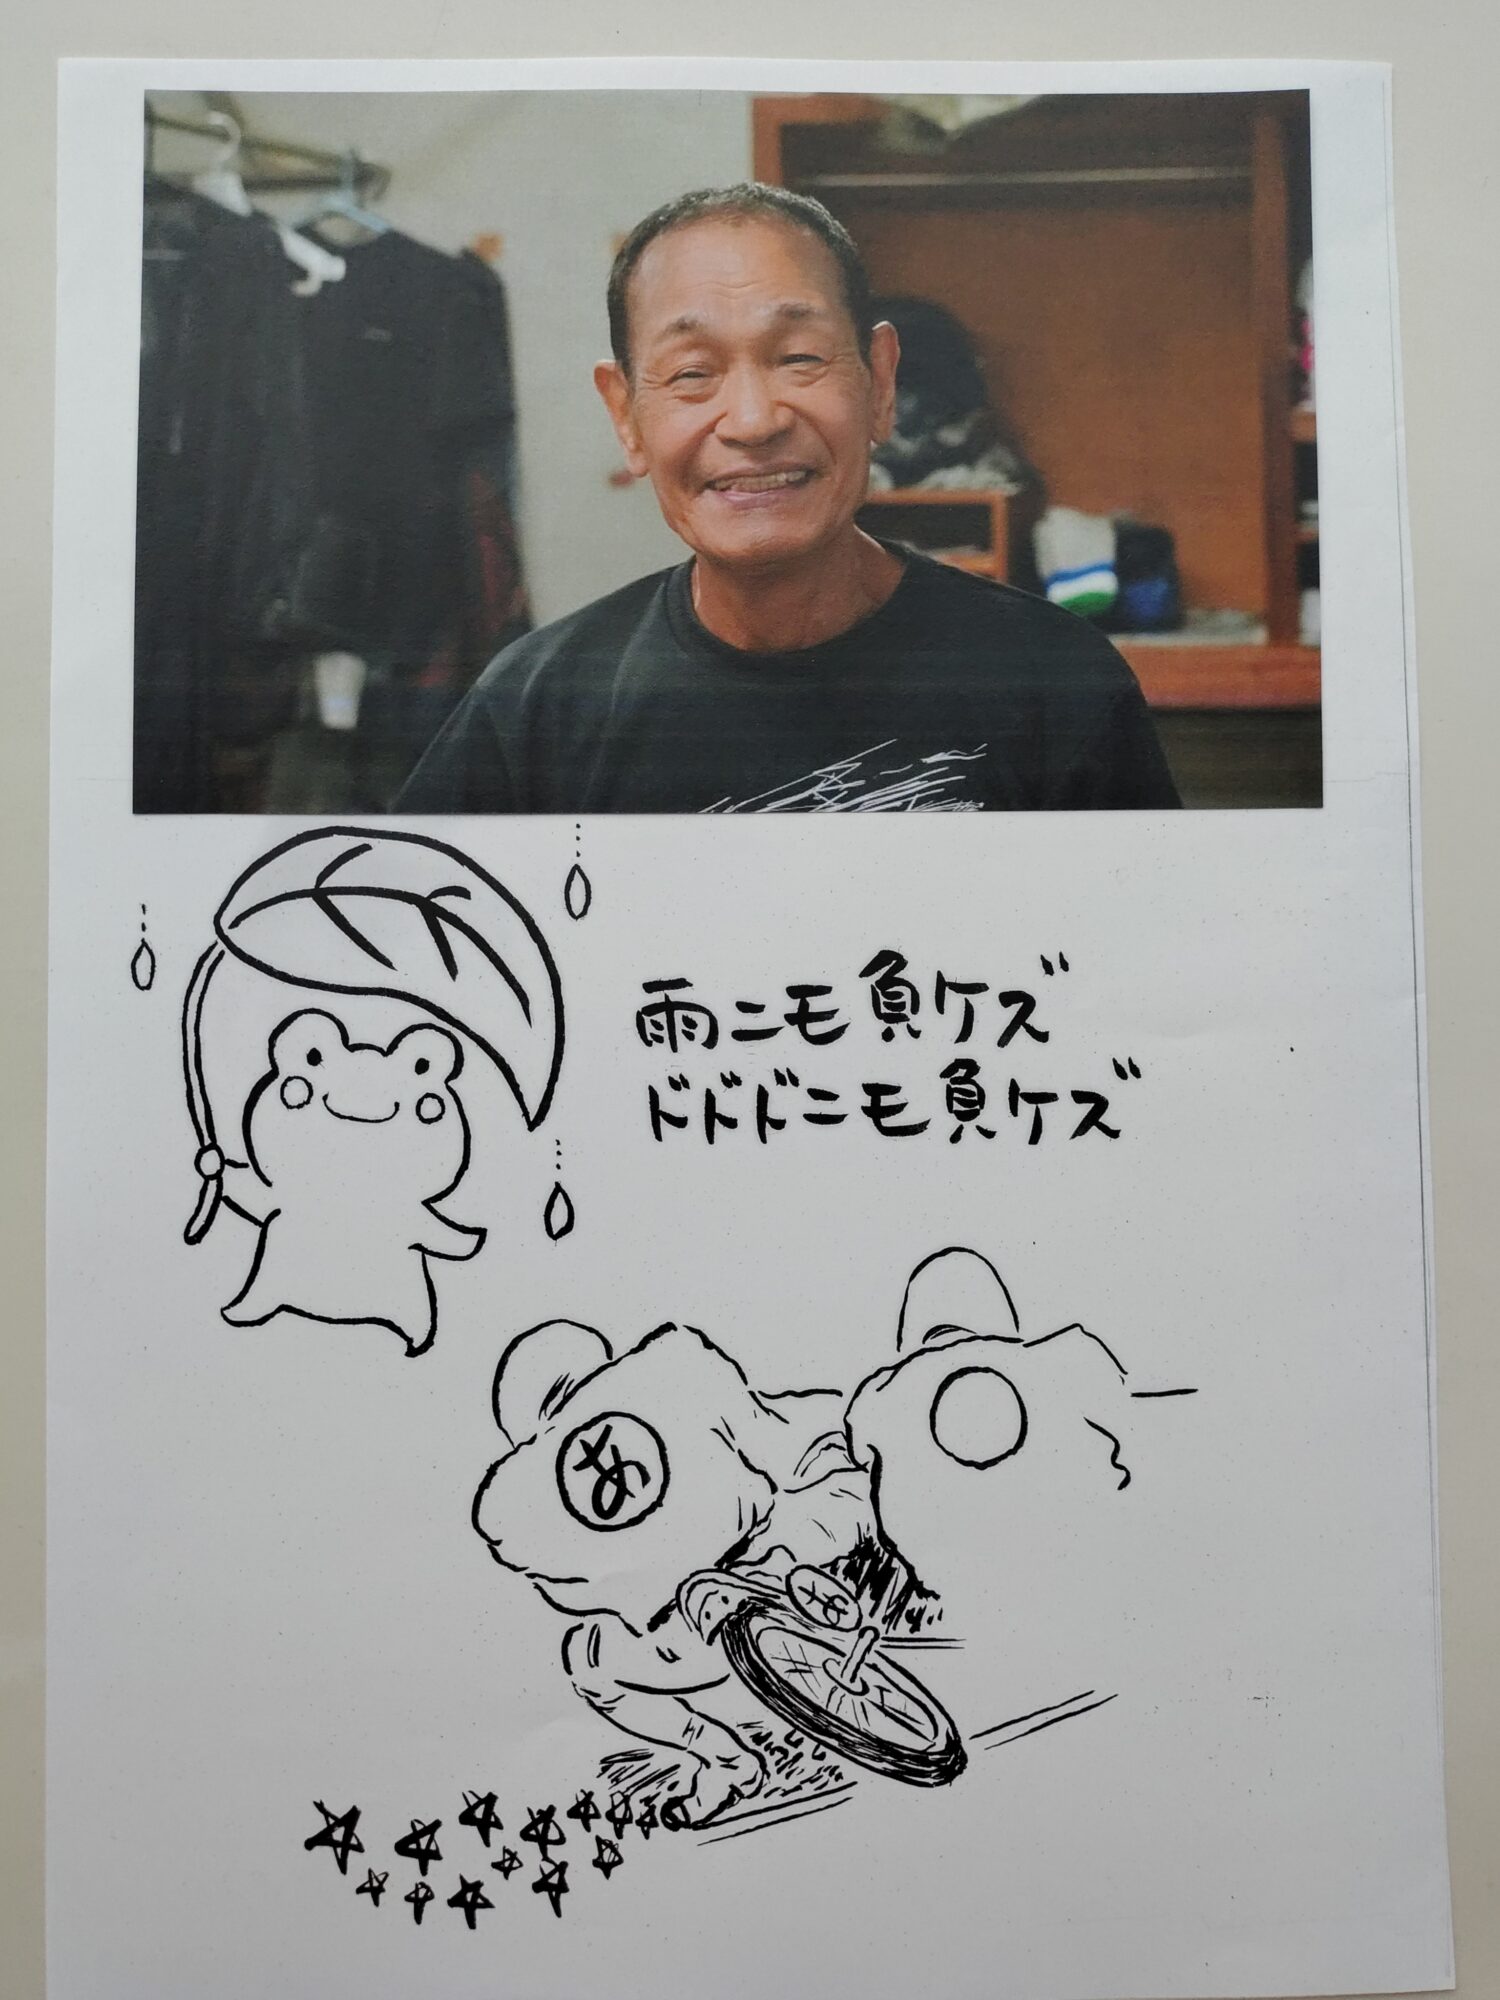 雨ニモ負ケズ
ドドドニモ負ケズ
あ
あ